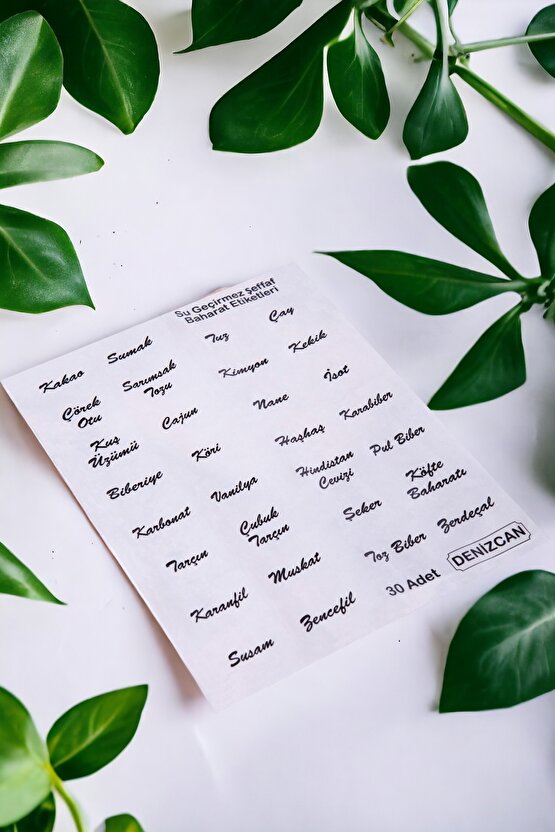 Su Geçirmez Şeffaf
Baharat Etiketleri
Kakao
Sumak
Tuz
Çay
Çörek
Otu
Sarımsak
Tozu
Kimyon
Kekik
Kuş
Üzümü
Cajun
Nane
İsot
Biberiye
Köri
Haşhaş
Karabiber
Karbonat
Vanilya
Hindistan
Cevizi
Pul Biber
Tarçın
Çubuk
Tarçın
Şeker
Köfte
Baharatı
Karanfil
Muskat
Toz Biber
Zerdeçal
Susam
Zencefil
30 Adet
DENIZCAN